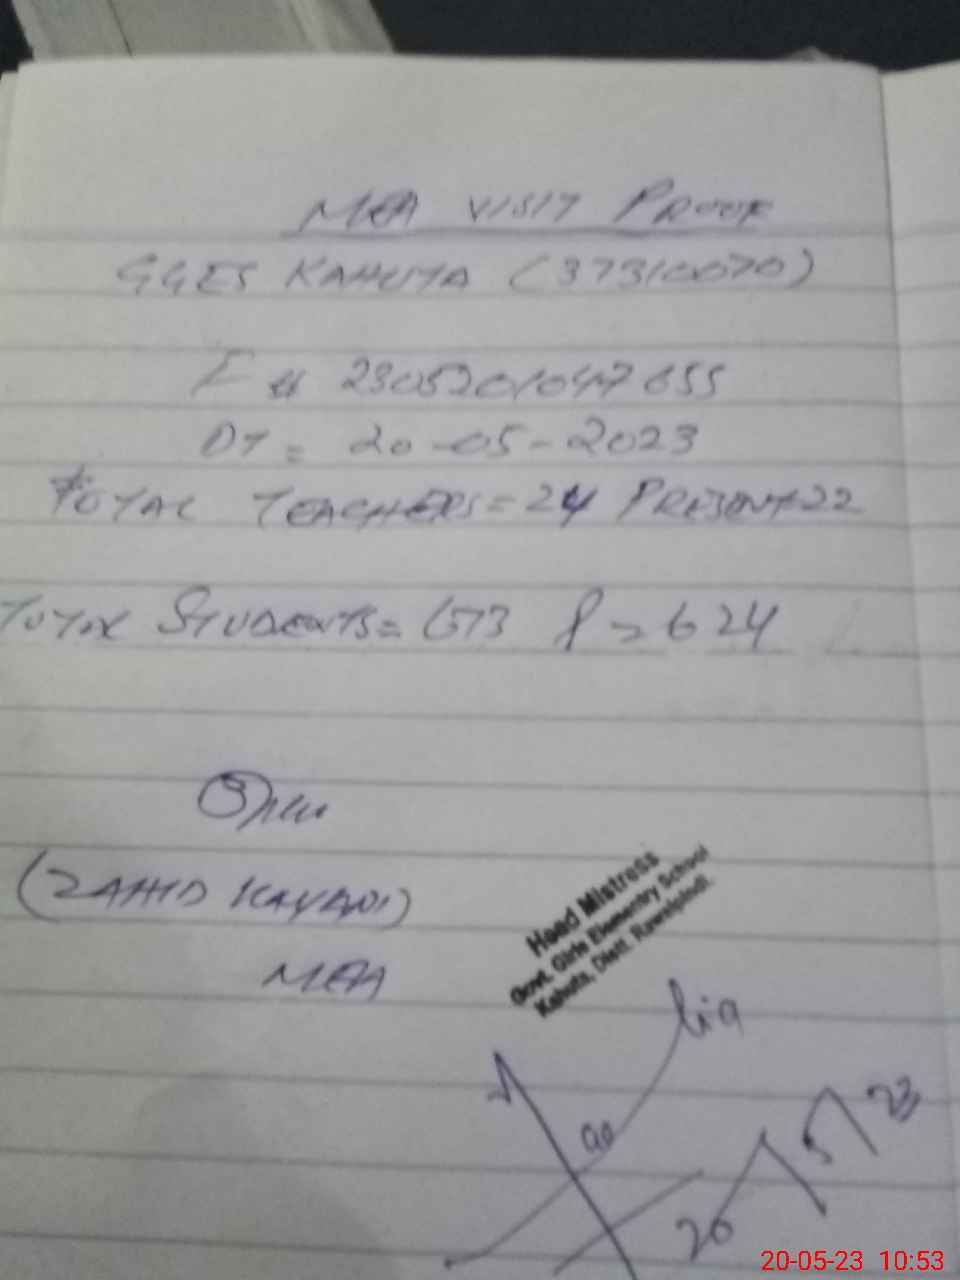 MEA VISIT PROOF
GGES KAHUTA (37310070)
F # 2305201047655
DT = 20-05-2023
TOTAL TEACHERS = 24 PRESENT = 22
TOTAL STUDENTS = 673 P = 624
(ZAHID KAYANI)
MEA
Head Mistress
Govt. Girls Elementary School
Kahuta, Distt. Rawalpindi.
20/5/23
20-05-23 10:53